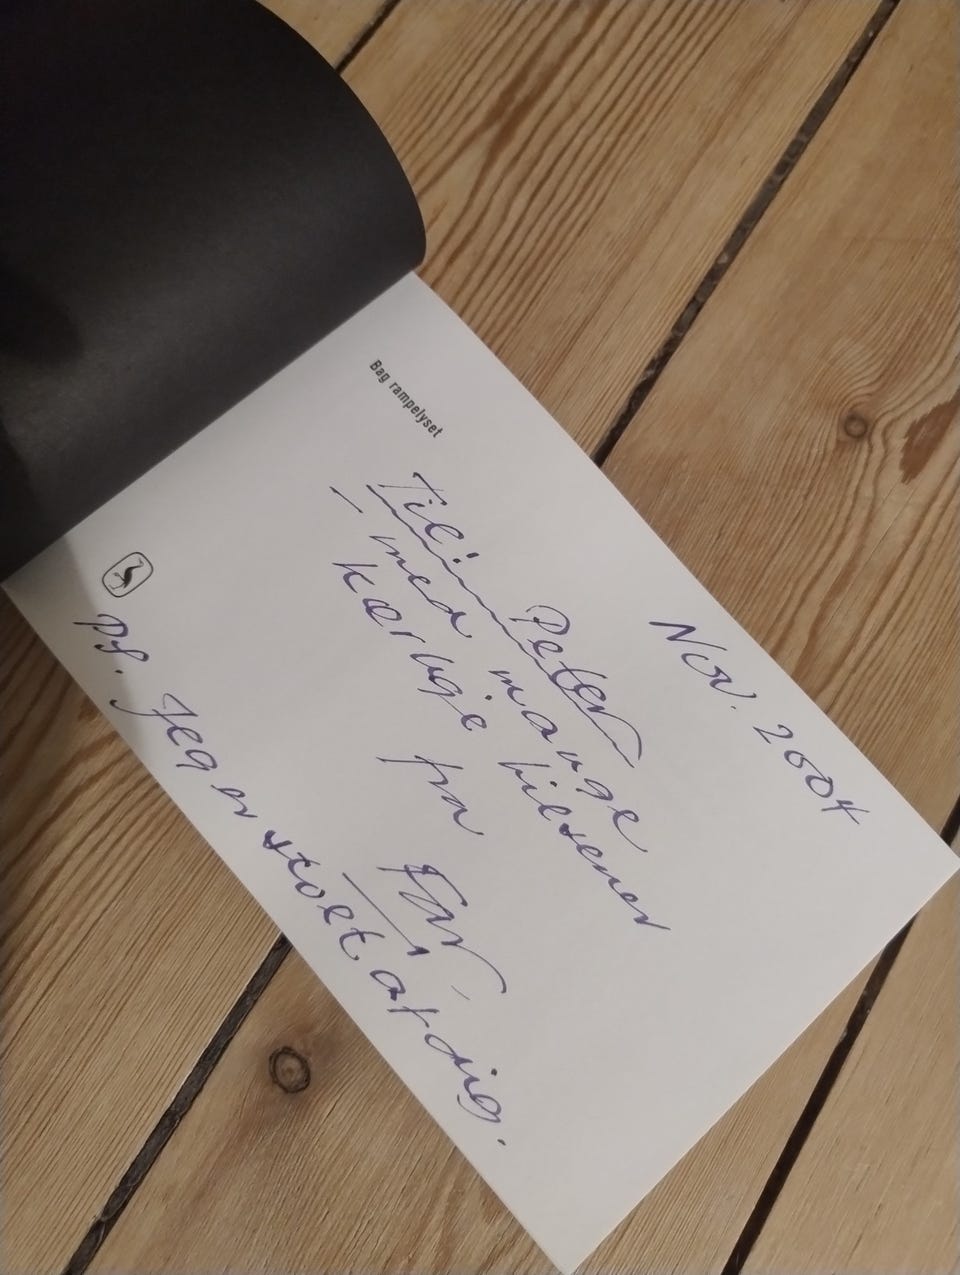 Bag rampelyset
Nov. 2004
Til: Peter
med mange hilsener
Kærlige fra
Far
PS. Jeg er stolt af dig.